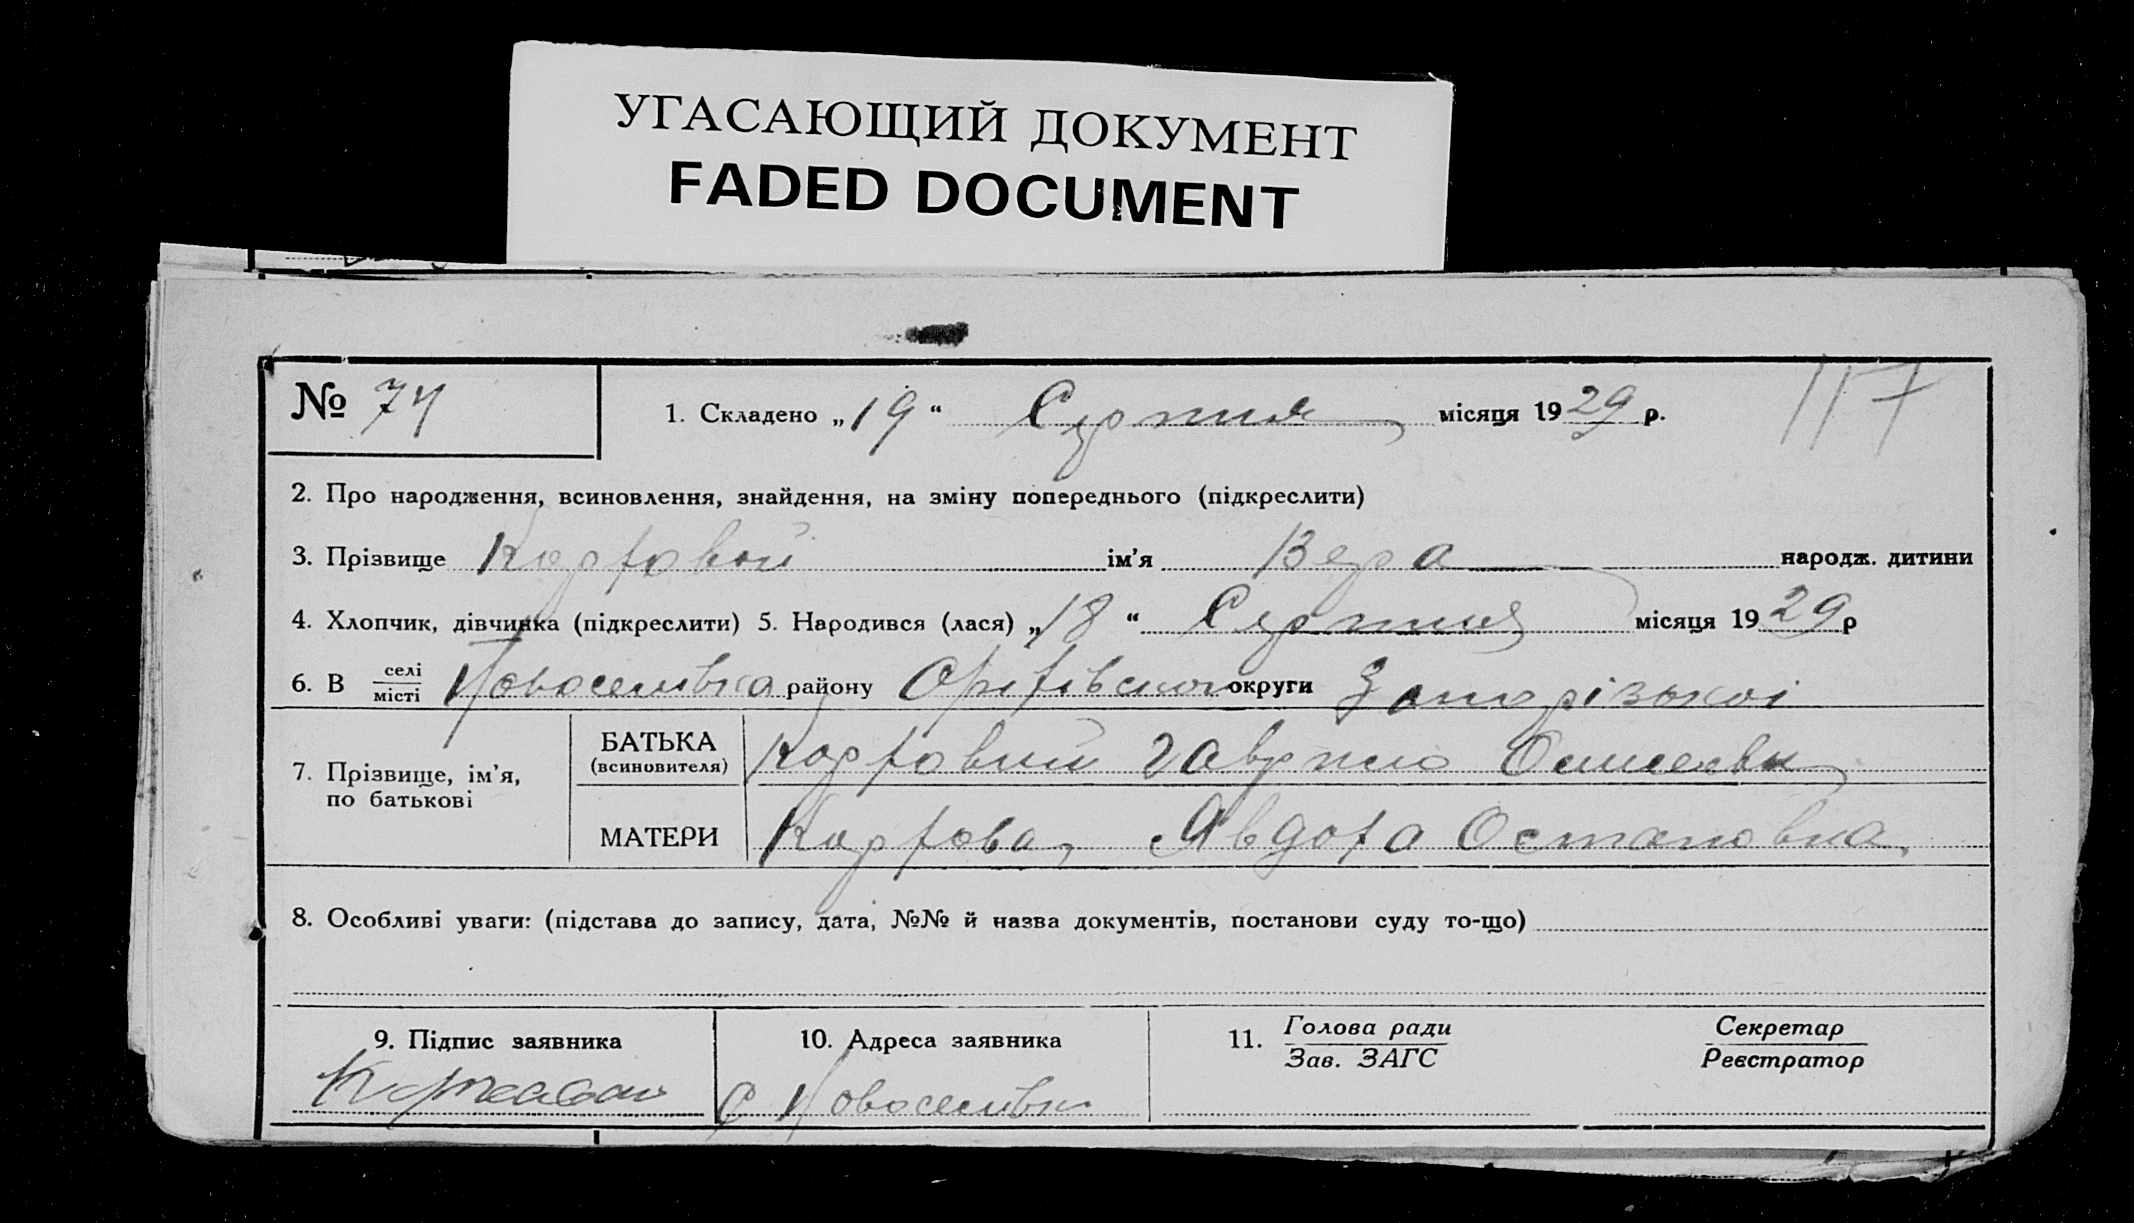 УГАСАЮЩИЙ ДОКУМЕНТ
FADED DOCUMENT
№ 74
1. Складено „19“ Серпня місяця 1929 р.
117
2. Про народження, всиновлення, знайдення, на зміну попереднього (підкреслити)
3. Прізвище Кортовой ім'я Вера народж. дитини
4. Хлопчик, дівчинка (підкреслити) 5. Народився (лася) „18“ Серпня місяця 1929 р
6. В селі/місті Новоселівка району Оріхівского округи Запорізькоі
7. Прізвище, ім'я, по батькові
БАТЬКА (всиновителя) Кортовий Гаврило
МАТЕРИ Кортова, Явдоха Остаповна.
8. Особливі уваги: (підстава до запису, дата, №№ й назва документів, постанови суду то-що)
9. Підпис заявника
10. Адреса заявника
11. Голова ради/Зав. ЗАГС
Секретар/Реєстратор
С Новоселівка